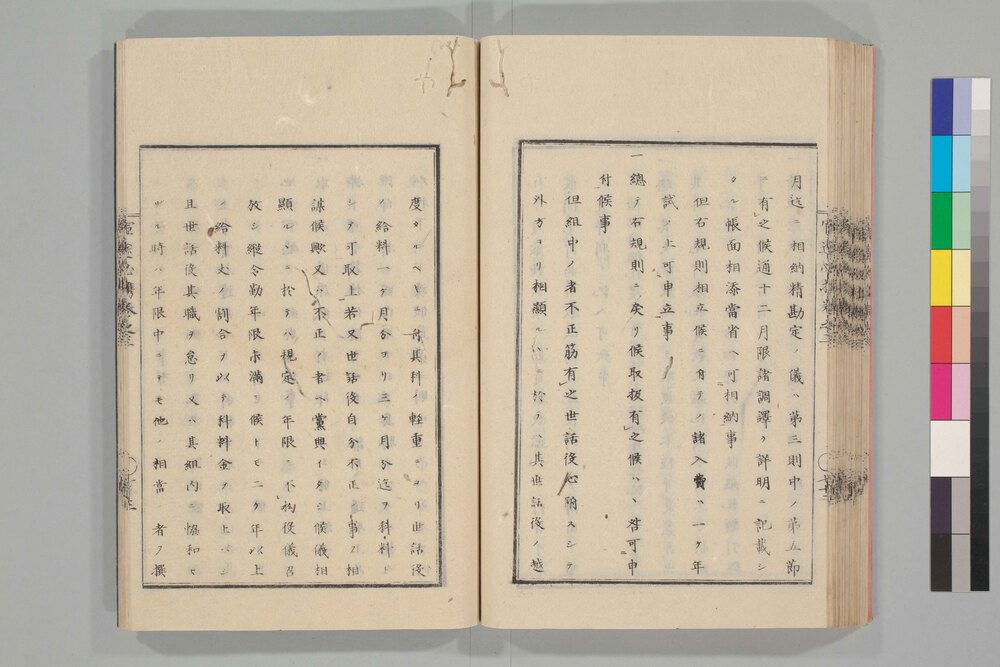 月迄ニ相納精勘定ノ儀ハ第三則中ノ第五節
有之候通十二月限諸調譯ヲ詳明ニ記載シ
タル帳面相添當省ヘ可相納事
但右規則相立候ニ付テハ諸入費ハ一ケ年
試之上可申立事
一總テ右規則ニ戻リ候取扱有之候ハヽ咎可申
付候事
但組中ノ者不正筋有之世話役心附スシテ
外方ヨリ相顯ルニ於テハ其世話役ノ越
度タルヘシ尤其科ノ輕重ニヨリ世話役
給料一ケ月分ヨリ三ケ月分迄ヲ科料ト
シテ可取上若又世話役自分不正ノ事ヲ相
謀候歟又ハ不正ノ者ヘ黨與イタシ候儀相
顯ルヽニ於テハ規定ノ年限ニ不拘役儀召
放シ縱令勤年限未滿ニ候トモ二ケ年以上
ノ給料丈ノ割合ヲ以テ科料金ヲ取上ヘシ
且世話役其職ヲ怠リ又ハ其組内ニ協和セ
サル時ハ年限中ニテモ他ノ相當ノ者ヲ撰